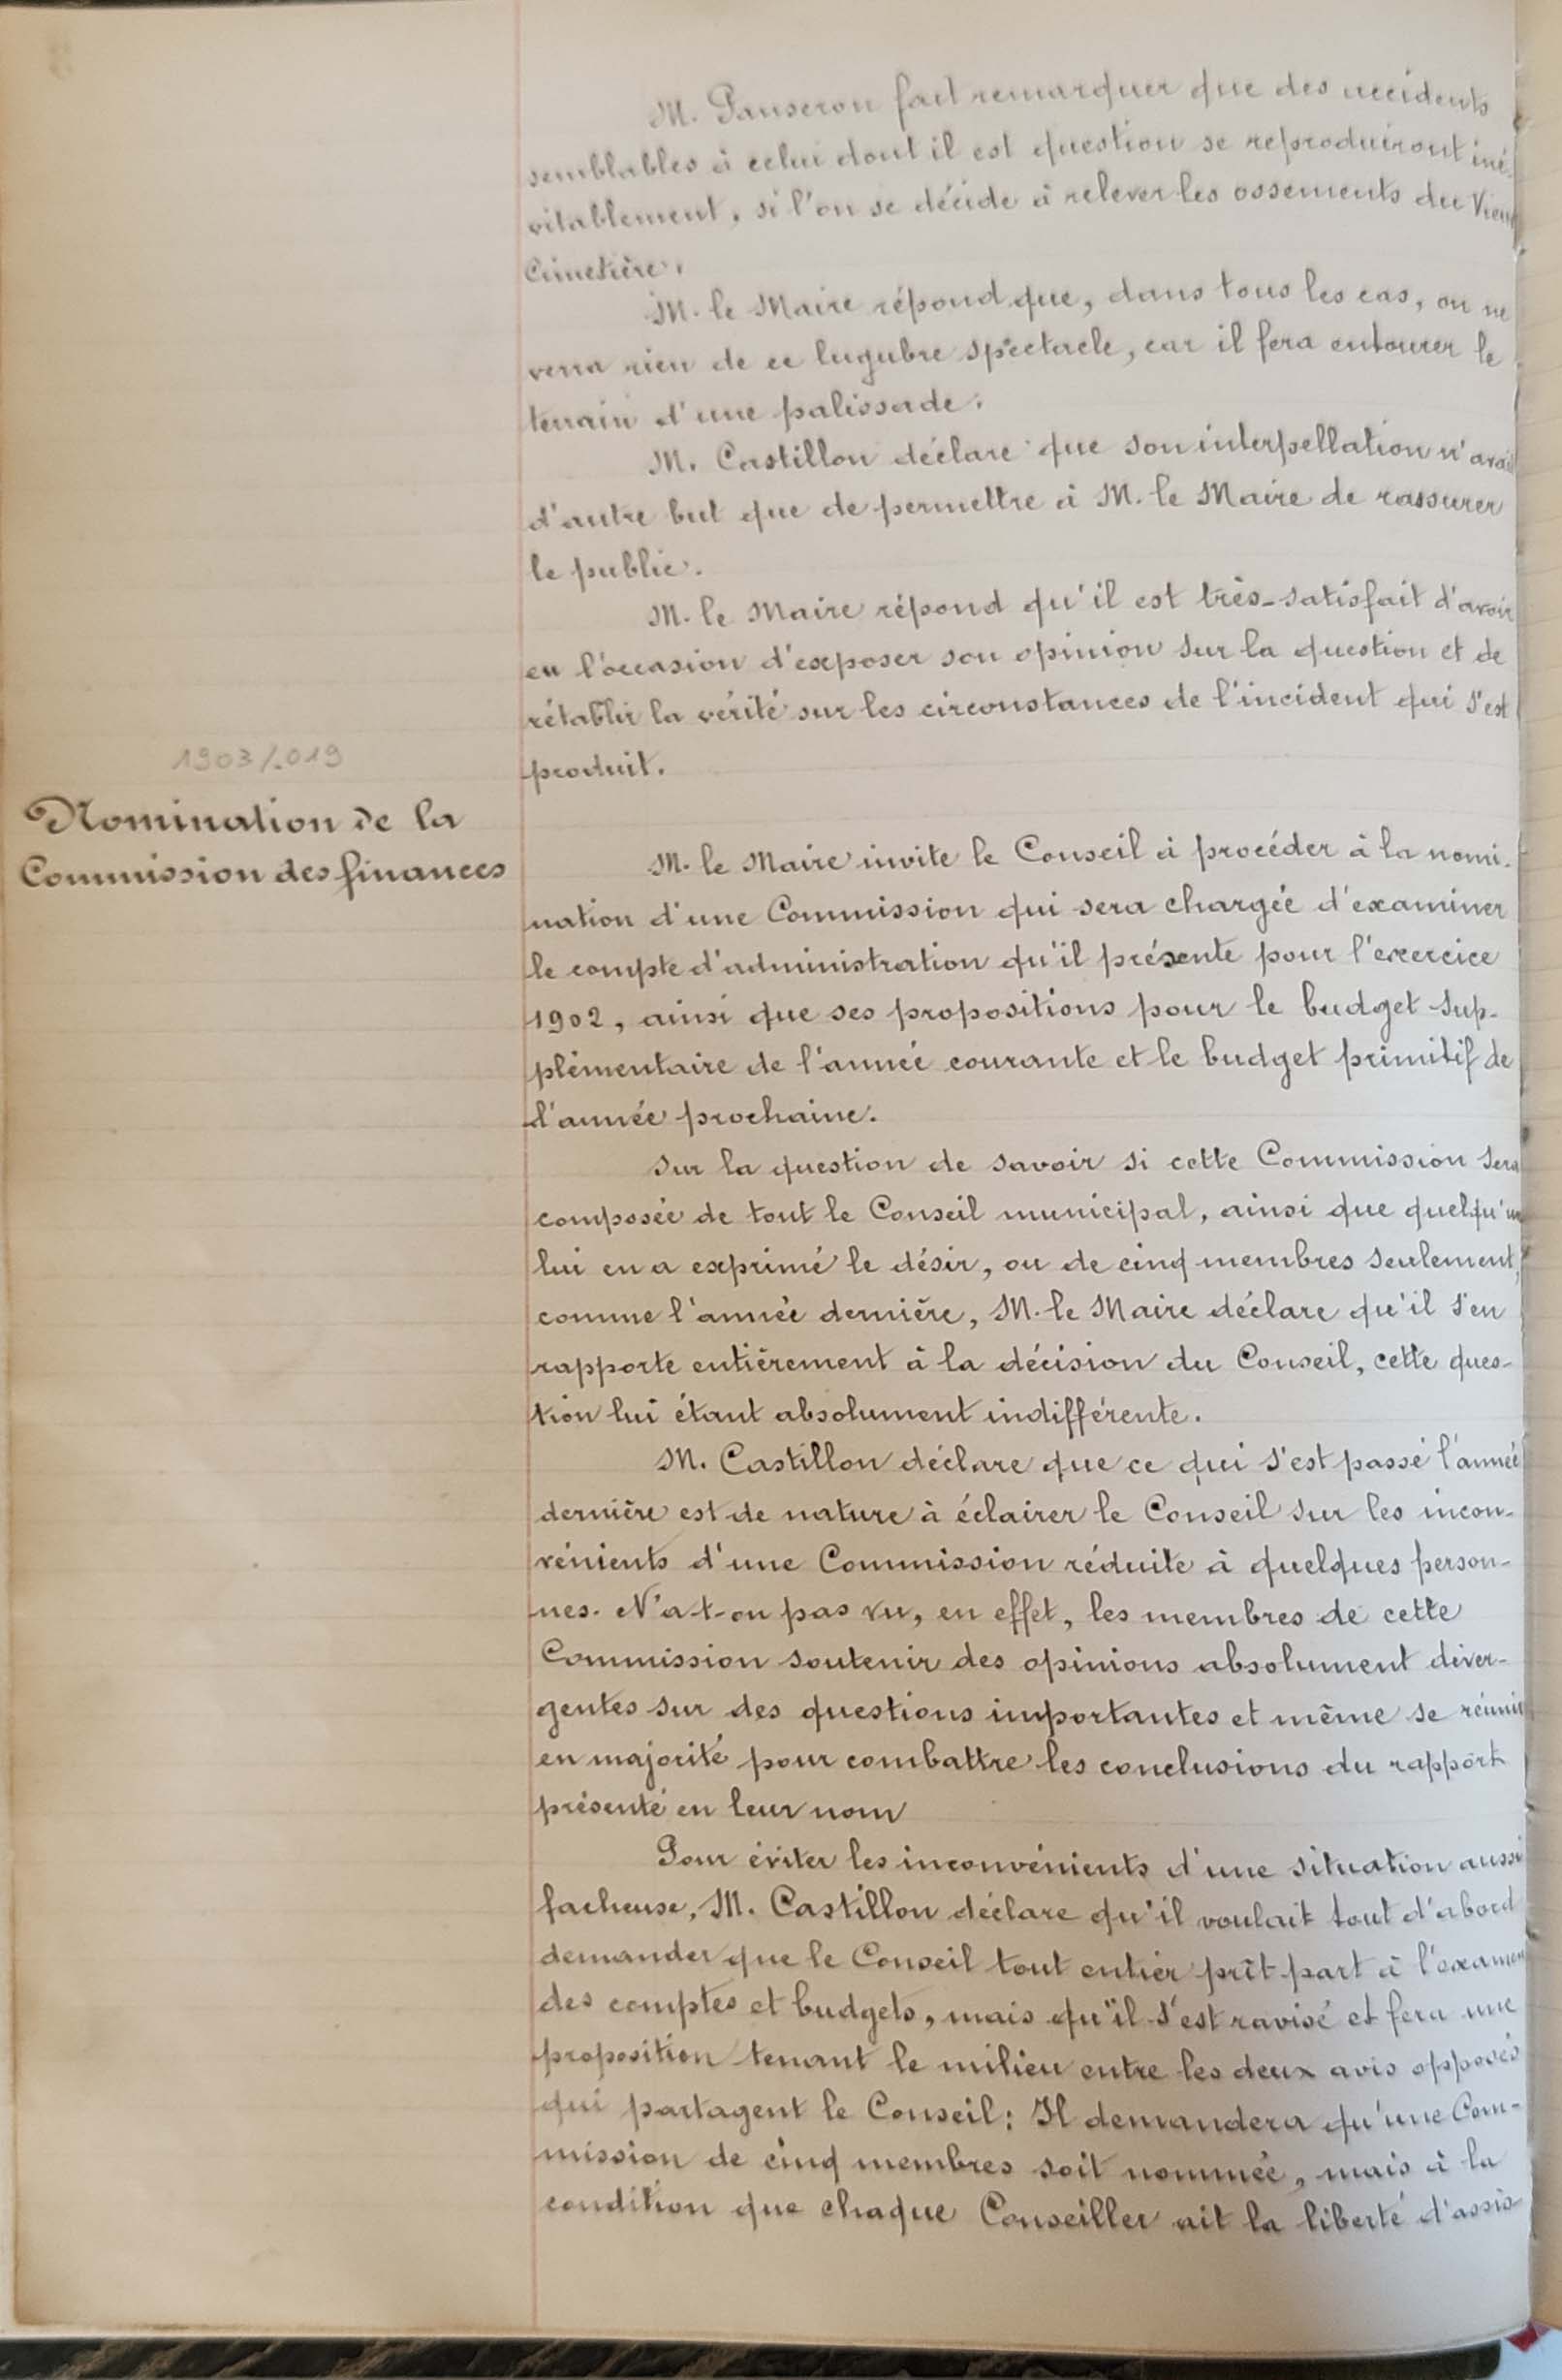 M. Panseron fait remarquer que des accidents
semblables à celui dont il est question se reproduiront iné-
vitablement, si l'on se décide à relever les ossements du Vieux
Cimetière.
M. le Maire répond que, dans tous les cas, on ne
verra rien de ce lugubre spectacle, car il fera entourer le
terrain d'une palissade.
M. Castillon déclare que son interpellation n'avait
d'autre but que de permettre à M. le Maire de rassurer
le public.
M. le Maire répond qu'il est très-satisfait d'avoir
eu l'occasion d'exposer son opinion sur la question et de
rétablir la vérité sur les circonstances de l'incident qui s'est
produit.
1903/.019
Nomination de la
Commission des finances
M. le Maire invite le Conseil à procéder à la nomi-
nation d'une Commission qui sera chargée d'examiner
le compte d'administration qu'il présente pour l'exercice
1902, ainsi que ses propositions pour le budget sup-
plémentaire de l'année courante et le budget primitif de
l'année prochaine.
Sur la question de savoir si cette Commission sera
composée de tout le Conseil municipal, ainsi que quelqu'un
lui en a exprimé le désir, ou de cinq membres seulement,
comme l'année dernière, M. le Maire déclare qu'il s'en
rapporte entièrement à la décision du Conseil, cette ques-
tion lui étant absolument indifférente.
M. Castillon déclare que ce qui s'est passé l'année
dernière est de nature à éclairer le Conseil sur les incon-
vénients d'une Commission réduite à quelques person-
nes. N'a-t-on pas vu, en effet, les membres de cette
Commission soutenir des opinions absolument diver-
gentes sur des questions importantes et même se réunir
en majorité pour combattre les conclusions du rapport
présenté en leur nom
Pour éviter les inconvénients d'une situation aussi
facheuse, M. Castillon déclare qu'il voulait tout d'abord
demander que le Conseil tout entier prît part à l'examen
des comptes et budgets, mais qu'il s'est ravisé et fera une
proposition tenant le milieu entre les deux avis opposés
qui partagent le Conseil: Il demandera qu'une Com-
mission de cinq membres soit nommée, mais à la
condition que chaque Conseiller ait la liberté d'assis-